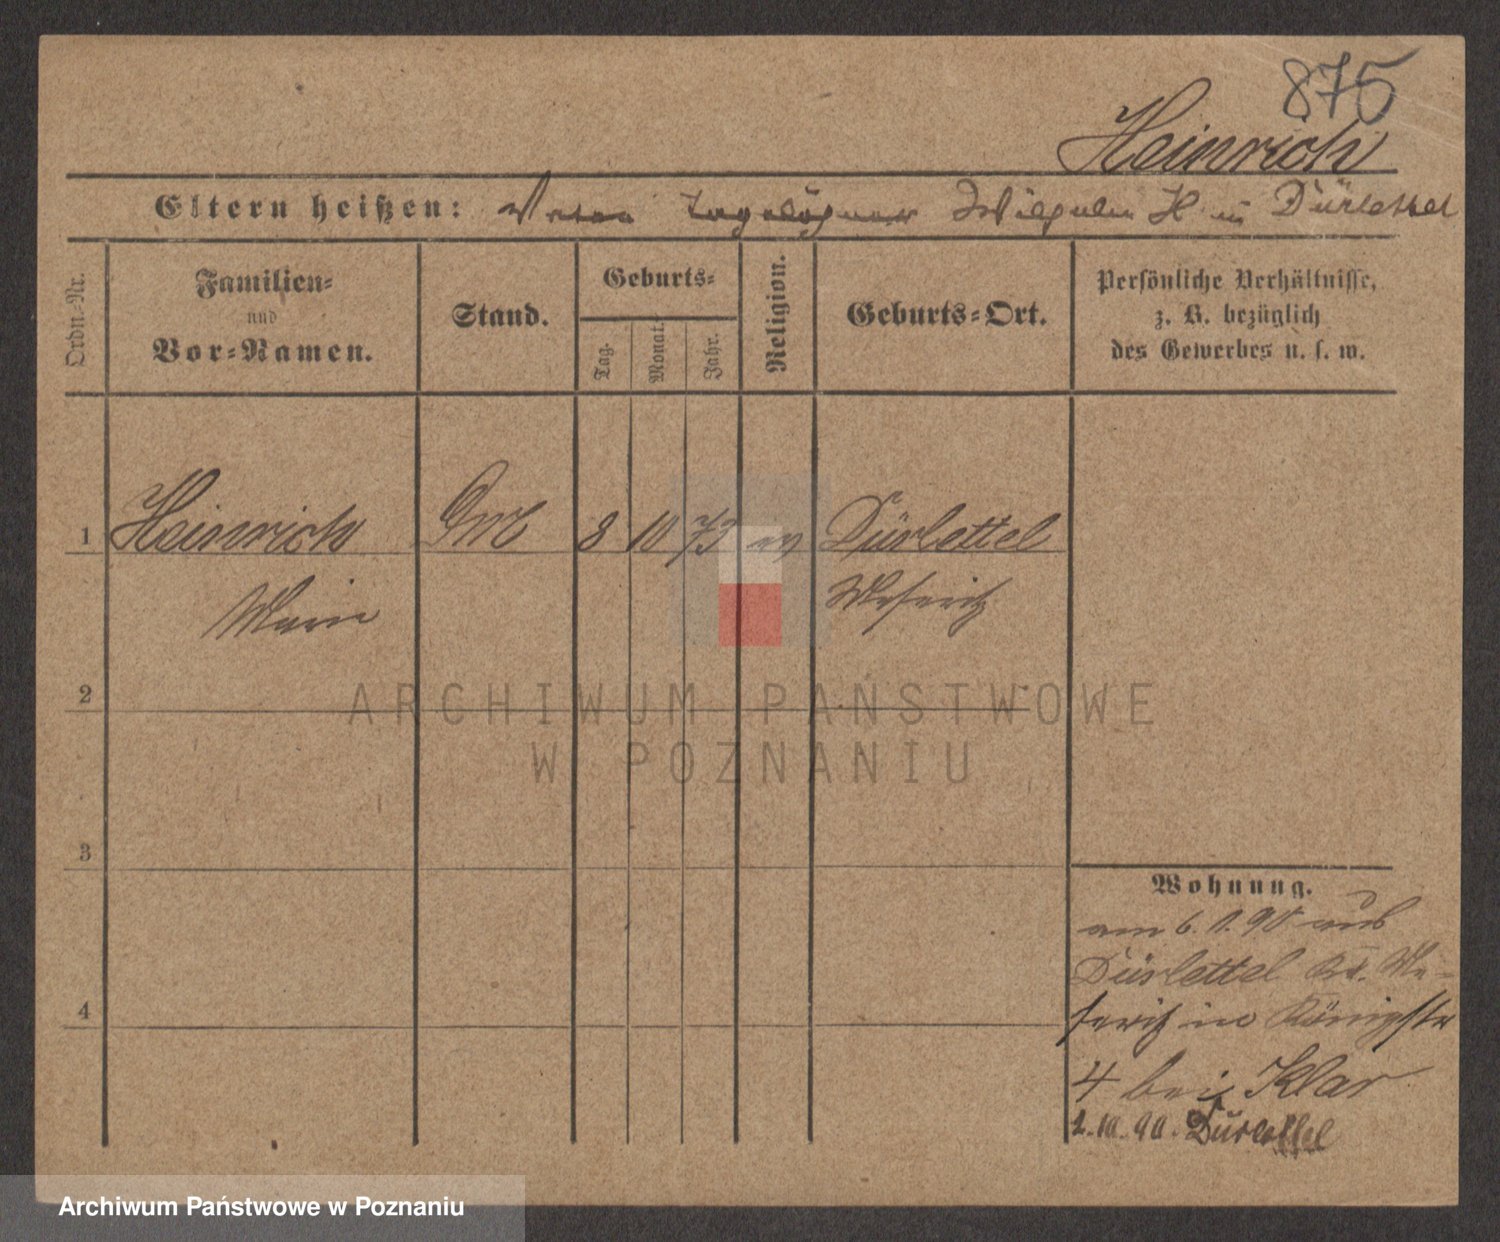 875
Heinrich
Eltern heißen: Vater Tagelöhner Wilhelm H in Dürlettel
Ordn.-Nr.
Familien-
und
Vor-Namen.
Stand.
Geburts-
Tag.
Monat.
Jahr.
Religion.
Geburts-Ort.
Persönliche Verhältnisse,
z. B. bezüglich
des Gewerbes u. s. w.
1 Heinrich DM 8 10 73 ev Dürlettel
Marie Meseritz
2
3
4
Wohnung.
am 6. 1. 90 aus
Dürlettel Kr. Me-
seritz in Königstr
4 bei Klar
2.10.90. Dürlettel
ARCHIWUM PAŃSTWOWE
W POZNANIU
Archiwum Państwowe w Poznaniu